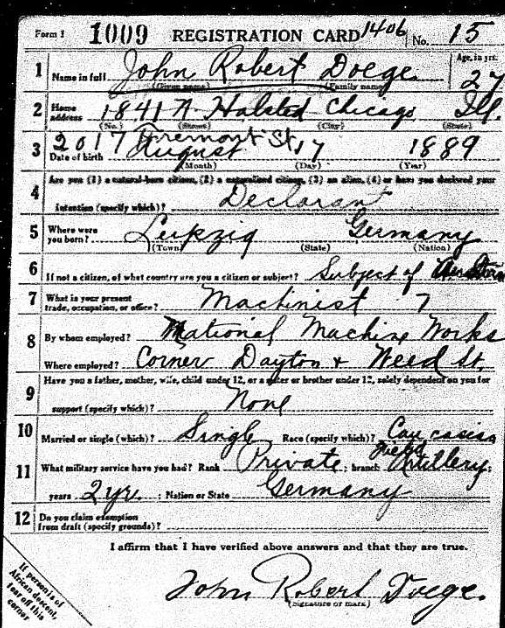 Form 1 1009 REGISTRATION CARD 1406 No. 15
1 Name in full John Robert Doege Age, in yrs. 27
(Given name) (Family name)
2 Home address 1841 N Halsted Chicago Ill.
(No.) (Street) (City) (State)
2017 Fremont St.
3 Date of birth August 17 1889
(Month) (Day) (Year)
4 Are you (1) a natural-born citizen, (2) a naturalized citizen, (3) an alien, (4) or have you declared your
intention (specify which)? Declarant
5 Where were you born? Leipzig Germany
(Town) (State) (Nation)
6 If not a citizen, of what country are you a citizen or subject? Subject of
7 What is your present trade, occupation, or office? Machinist 7
8 By whom employed? National Machine Works
Where employed? Corner Dayton + Weed St.
9 Have you a father, mother, wife, child under 12, or a sister or brother under 12, solely dependent on you for
support (specify which)? None
10 Married or single (which)? Single Race (specify which)? Caucasian
11 What military service have you had? Rank Private ; branch Field Artillery ;
years 2 yr. ; Nation or State Germany
12 Do you claim exemption
from draft (specify grounds)?
I affirm that I have verified above answers and that they are true.
John Robert Doege.
(Signature or mark)
If person is of
African descent,
tear off this
corner